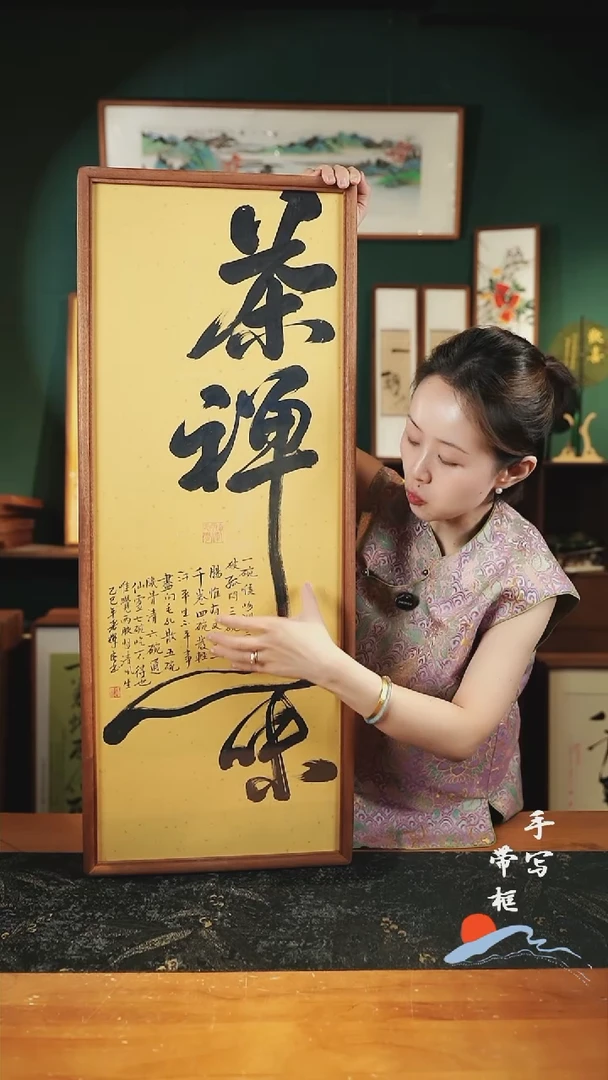 茶禅一味
一碗喉吻
破孤悶三碗
腸惟有文
千卷四碗發輕
汗平生不平事
盡向毛孔散五碗
肌骨清六碗通
仙靈七碗吃不得也
唯覺兩腋習習清風生
乙巳年
手写
带框